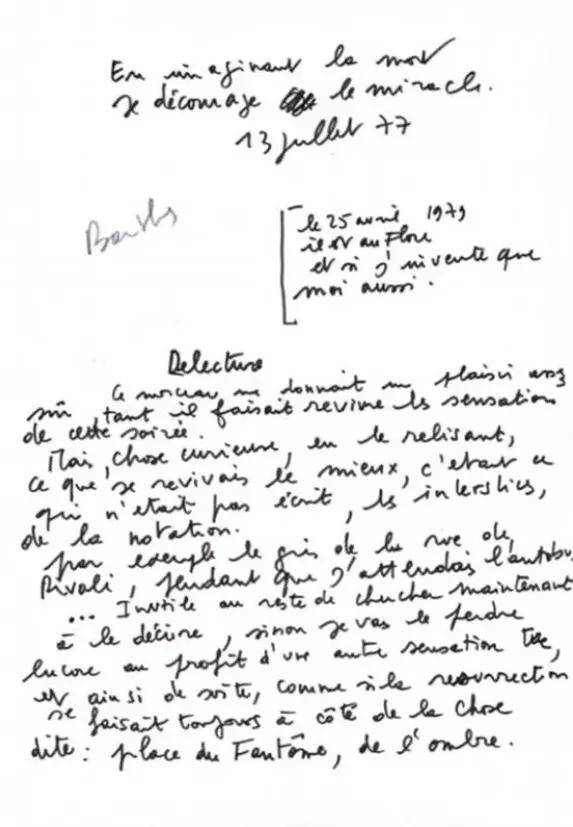 En imaginant la mort
je décourage le miracle.
13 juillet 77
Barthes
le 25 avril 1979
il est au Flore
et si j'invente que
moi aussi.
Relecture
Ce morceau me donnait un plaisir assez
sûr, tant il faisait revivre les sensations
de cette soirée.
Mais, chose curieuse, en le relisant,
ce que je revivais le mieux, c'était ce
qui n'était pas écrit, les interstices,
de la notation.
par exemple le gris de la rue de
Rivoli, pendant que j'attendais l'autobus
... Inutile au reste de chercher maintenant
à le décrire, sinon je vas le perdre
encore au profit d'une autre sensation
et ainsi de suite, comme si la résurrection
se faisait toujours à côté de la chose
dite : place du Fantôme, de l'ombre.